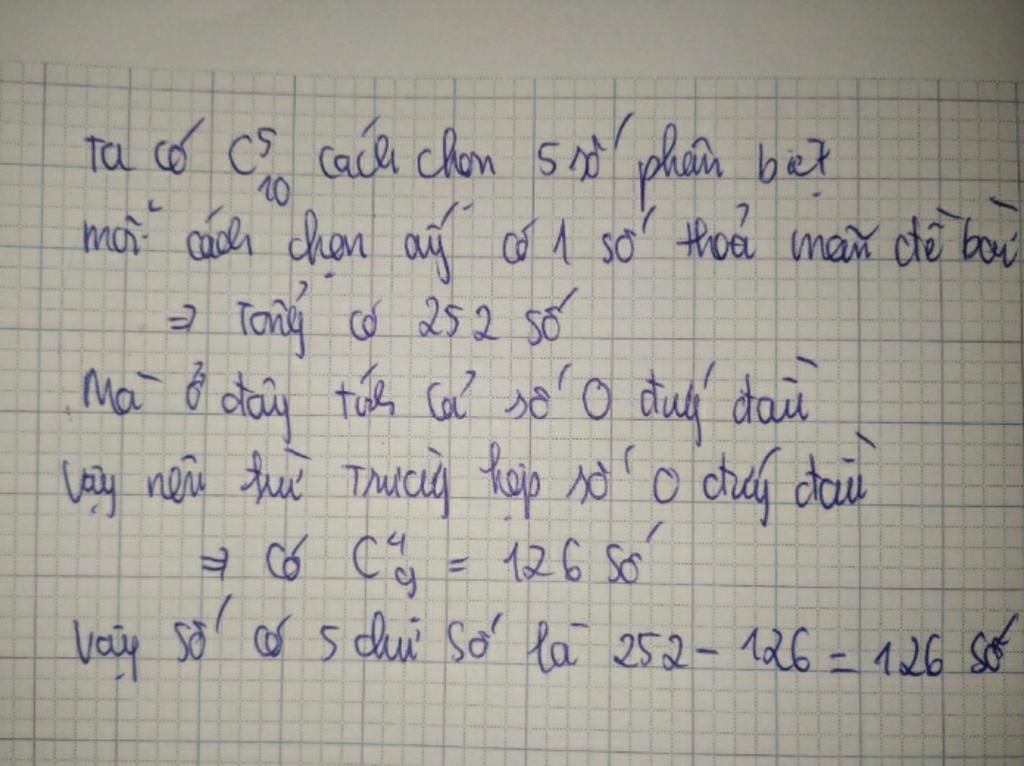 Ta có C⁵₁₀ cách chọn 5 số phân biệt
mỗi cách chọn ấy có 1 số thoả mãn đề bài
⇒ Tổng có 252 số
Mà ở đây tính cả số 0 đứng đầu
Vậy nên trừ trường hợp số 0 đứng đầu
⇒ có C⁴₉ = 126 số
Vậy số có 5 chữ số là 252 - 126 = 126 số